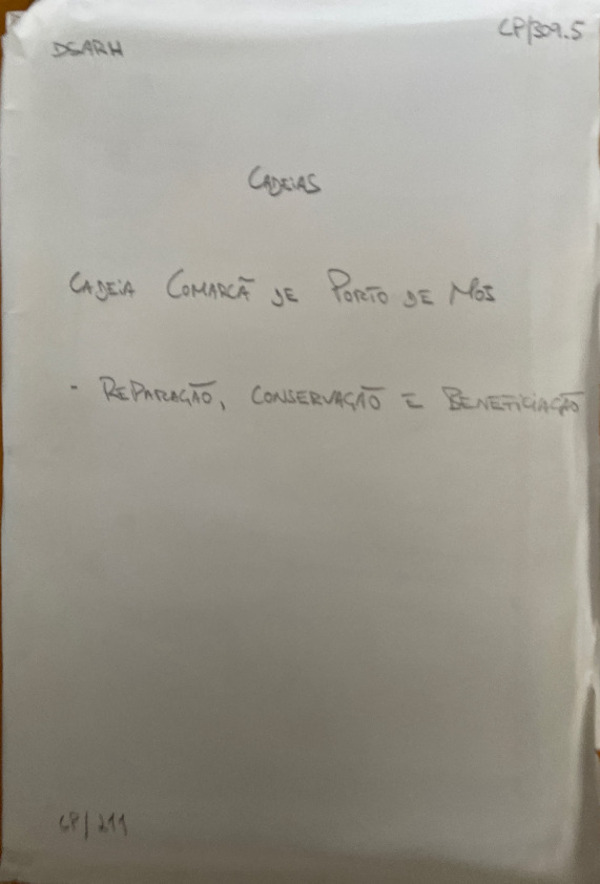 DSARH
CP/309.5
CADEIAS
CADEIA COMARCÃ DE PORTO DE MÓS
- REPARAÇÃO, CONSERVAÇÃO E BENEFICIAÇÃO
CP/211